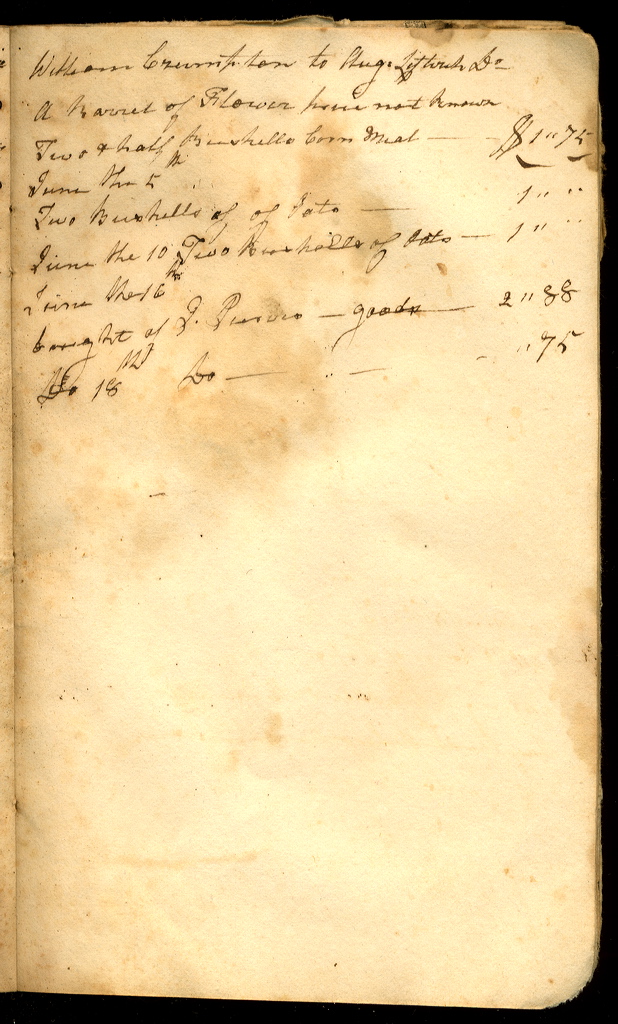 William Crumpton to Aug: Leftwich Do
A Barrel of Flower price not known
Two & half Bushells Corn Meal — $1"75
June the 5th
Two Bushells of of Oats — 1" "
June the 10 Two Bushells of Oats — 1" "
June the 16th
bought of J. — goods — 2"88
Do 18th Do — " — "75